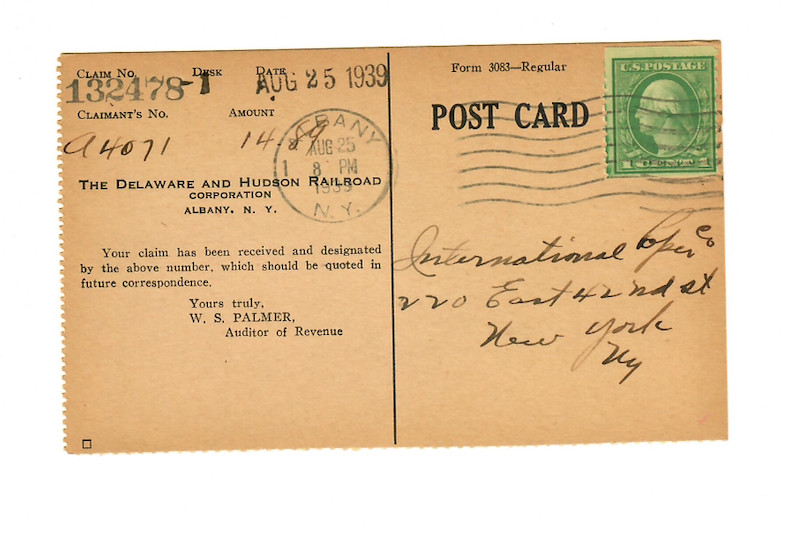 CLAIM NO. DESK DATE
132478-1 AUG 25 1939
CLAIMANT'S NO. AMOUNT
A4071 14.89
THE DELAWARE AND HUDSON RAILROAD
CORPORATION
ALBANY, N. Y.
Your claim has been received and designated
by the above number, which should be quoted in
future correspondence.
Yours truly,
W. S. PALMER,
Auditor of Revenue
ALBANY
AUG 25
1 8 PM
1939
N.Y.
Form 3083—Regular
POST CARD
U.S. POSTAGE
International Co
220 East 42nd st
New York
Ny